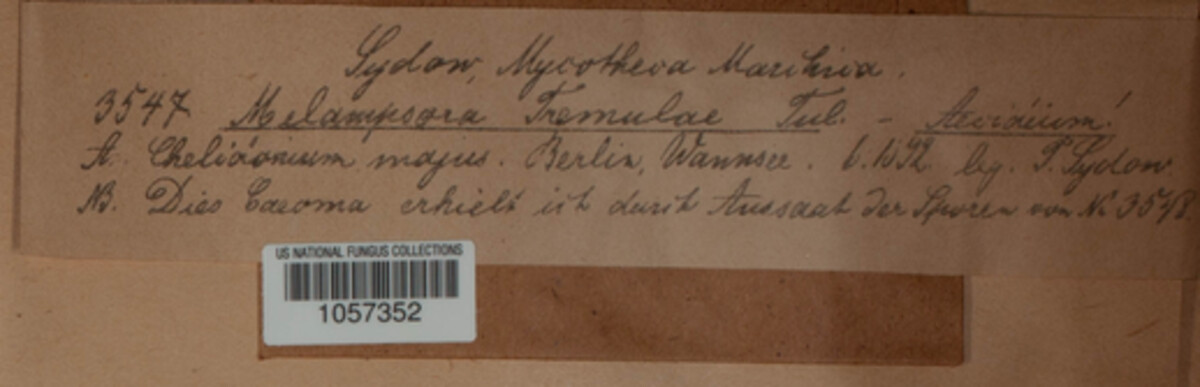 Sydow, Mycotheca Marchica.
3547 Melampsora Tremulae Tul. - Aecidium!
A. Chelidonium majus. Berlin, Wannsee. 6.1892 leg. P. Sydow
NB. Dies Caeoma erhielt ich durch Aussaat der Sporen von N. 3548.
US NATIONAL FUNGUS COLLECTIONS
1057352